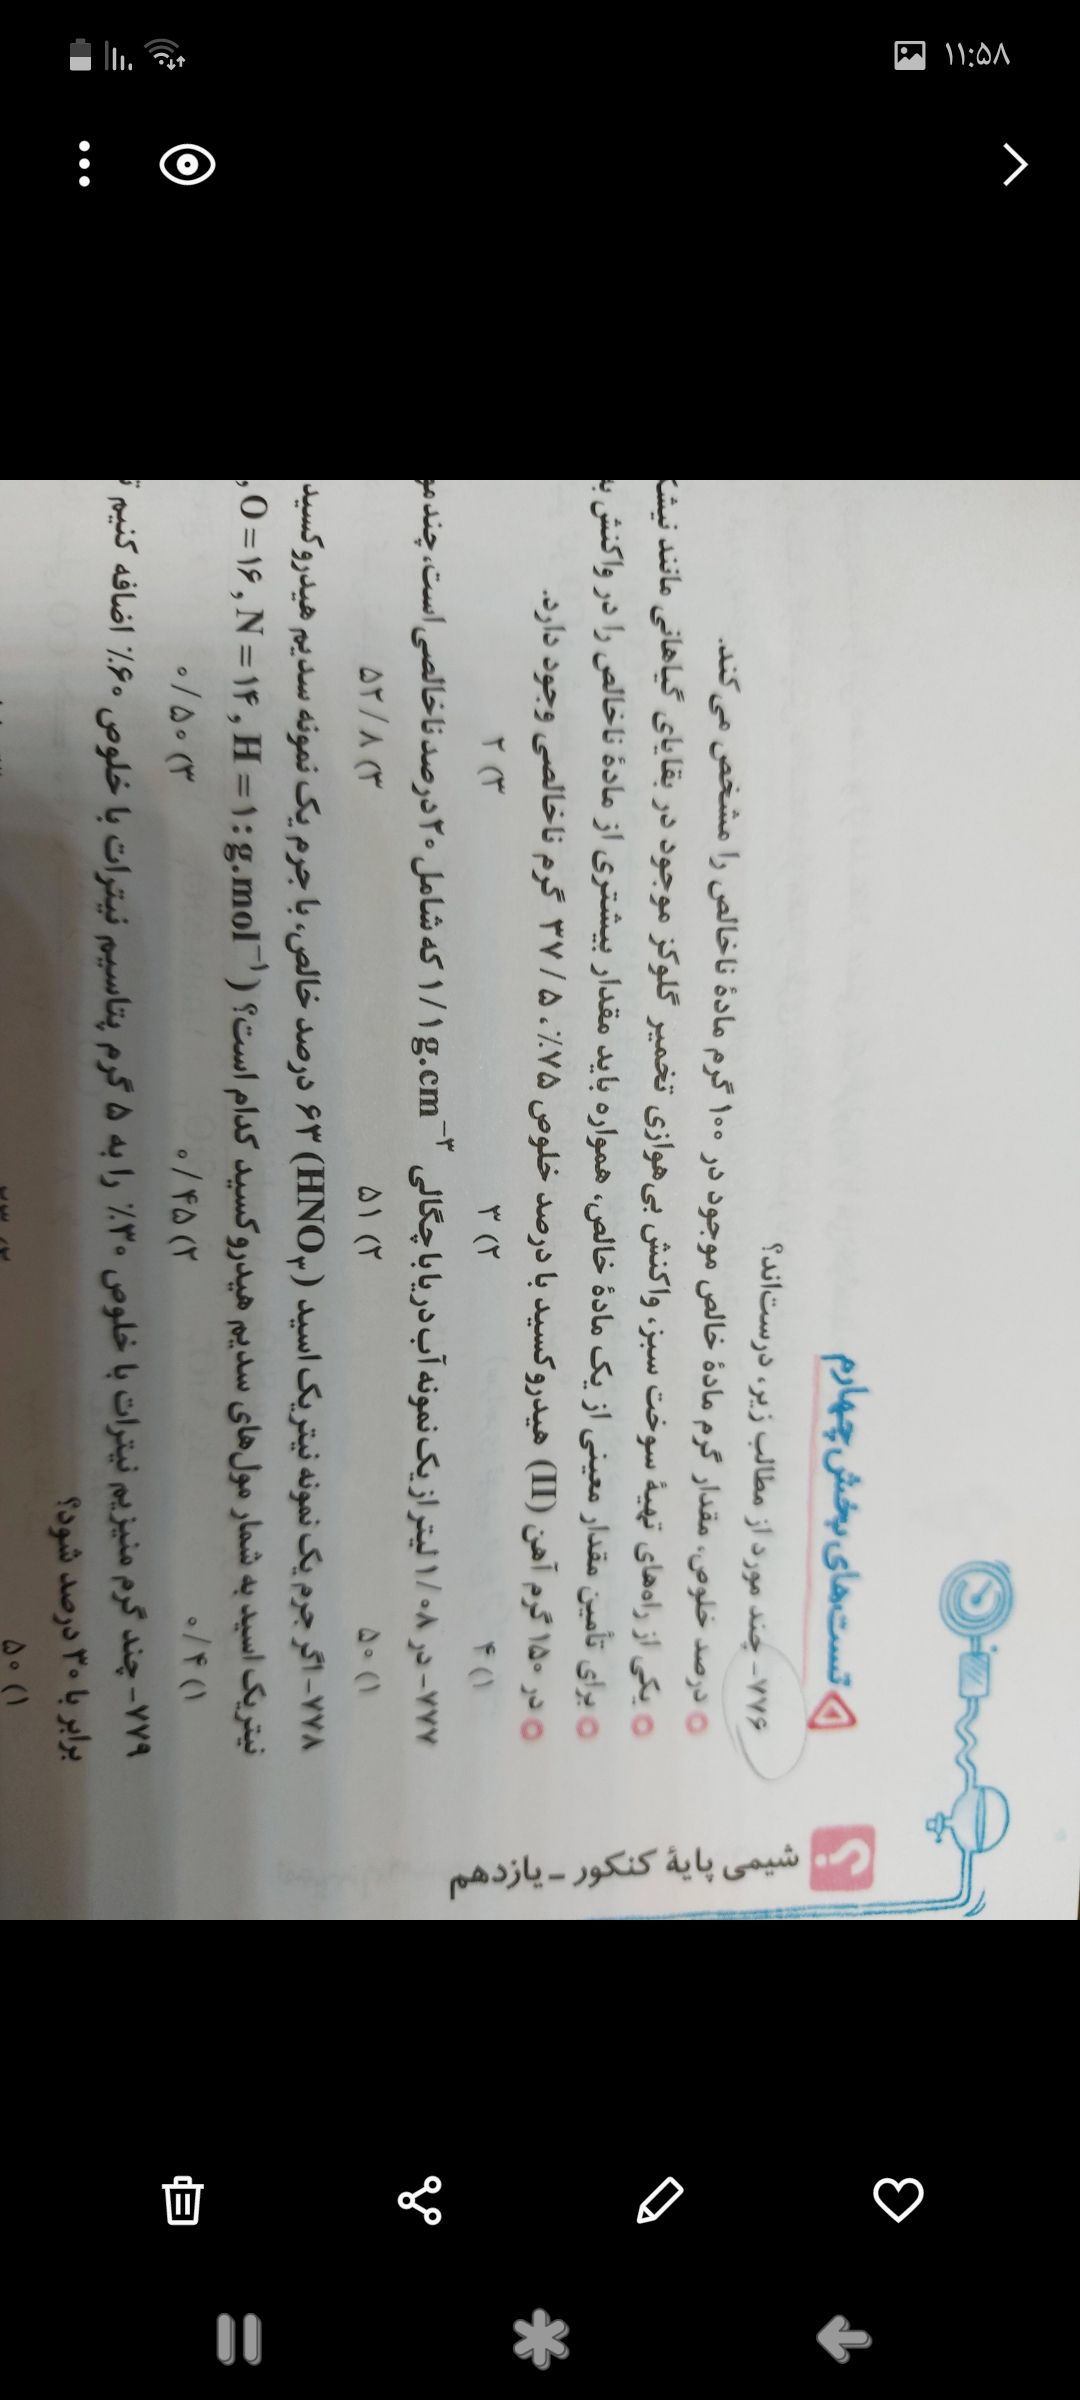 ۱۱:۵۸
شیمی پایهٔ کنکور - یازدهم
تست‌های بخش چهارم
۷۷۶- چند مورد از مطالب زیر، درست‌اند؟
درصد خلوص، مقدار گرم مادهٔ خالص موجود در ۱۰۰ گرم مادهٔ ناخالص را مشخص می‌کند.
یکی از راه‌های تهیهٔ سوخت سبز، واکنش بی‌هوازی تخمیر گلوکز موجود در بقایای گیاهانی مانند
برای تأمین مقدار معینی از یک مادهٔ خالص، همواره باید مقدار بیشتری از مادهٔ ناخالص را در واکنش
در ۱۵۰ گرم آهن (II) هیدروکسید با درصد خلوص ۷۵٪، ۳۷/۵ گرم ناخالصی وجود دارد.
۱) ۴ ۲) ۳ ۳) ۲
۷۷۷- در ۱/۰۸ لیتر از یک نمونه آب دریا با چگالی ۱/۱g.cm⁻³ که شامل ۲۰ درصد ناخالصی است، چند
۱) ۵۰ ۲) ۵۱ ۳) ۵۲/۸
۷۷۸- اگر جرم یک نمونه نیتریک اسید (HNO₃) ۶۳ درصد خالص، با جرم یک نمونه سدیم هیدروکسید
نیتریک اسید به شمار مول‌های سدیم هیدروکسید کدام است؟ (O=۱۶, N=۱۴, H=۱: g.mol⁻¹
۱) ۰/۴ ۲) ۰/۴۵ ۳) ۰/۵۰
۷۷۹- چند گرم منیزیم نیترات با خلوص ۳۰٪ را به ۵ گرم پتاسیم نیترات با خلوص ۶۰٪ اضافه کنیم
برابر با ۳۰ درصد شود؟
۱) ۵۰